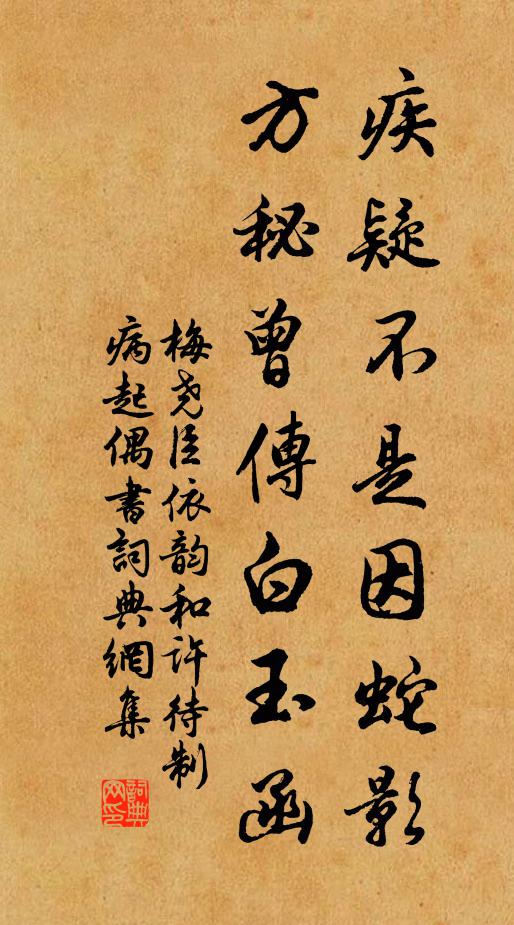 疾疑不是因蛇影
方秘曾傳白玉函
梅尧臣依韵和许待制
病起偶書詞典網集
詞典
网印